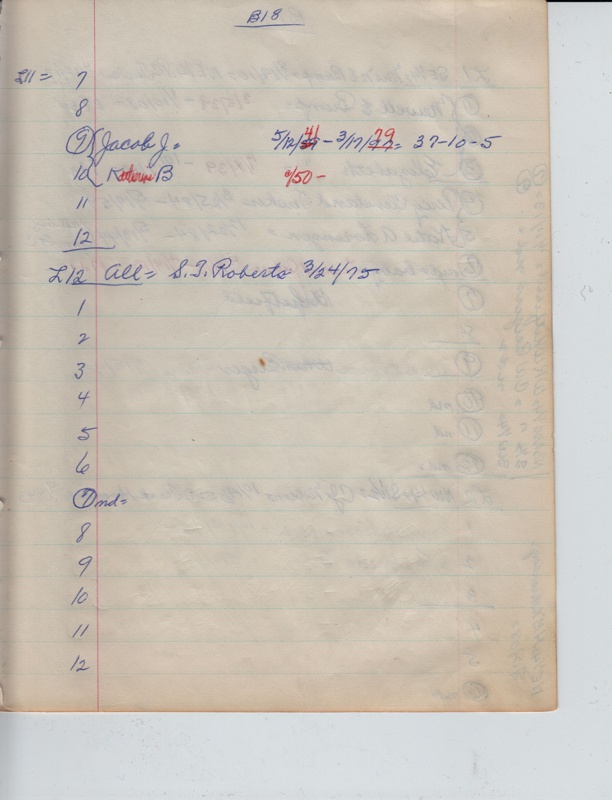 B18
L11 = 7
8
9 Jacob J = 5/12/41 - 3/17/79 = 37-10-5
10 Katherine B 9/50 -
11
12
L12 All = S. T. Roberts 3/24/75
1
2
3
4
5
6
7 nd =
8
9
10
11
12